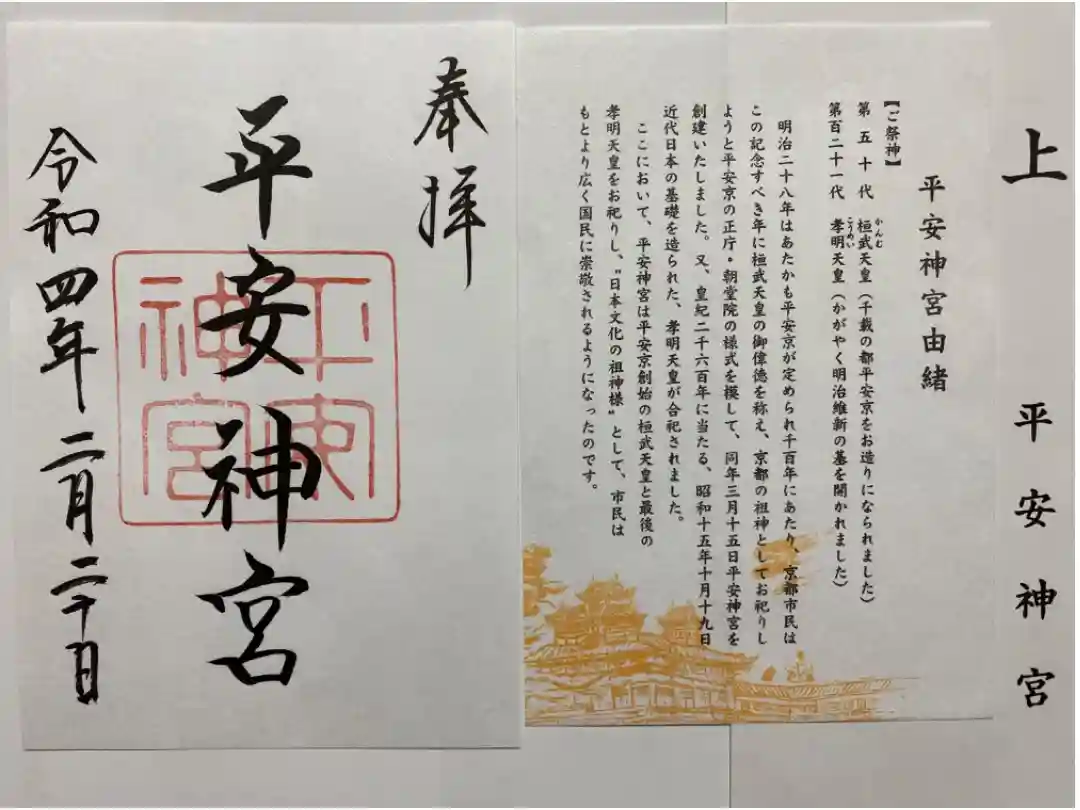 上　平安神宮
平安神宮由緒
【ご祭神】
第五十代　桓武天皇（千載の都平安京をお造りになられました）
かんむ
第百二十一代　孝明天皇（かがやく明治維新の基を開かれました）
こうめい
明治二十八年はあたかも平安京が定められ千百年にあたり、京都市民は
この記念すべき年に桓武天皇の御偉徳を称え、京都の祖神としてお祀りし
ようと平安京の正庁・朝堂院の様式を模して、同年三月十五日平安神宮を
創建いたしました。又、皇紀二千六百年に当たる、昭和十五年十月十九日
近代日本の基礎を造られた、孝明天皇が合祀されました。
ここにおいて、平安神宮は平安京創始の桓武天皇と最後の
孝明天皇をお祀りし、〝日本文化の祖神様〟として、市民は
もとより広く国民に崇敬されるようになったのです。
奉拝
平安神宮
平安
神宮
令和四年二月二十日